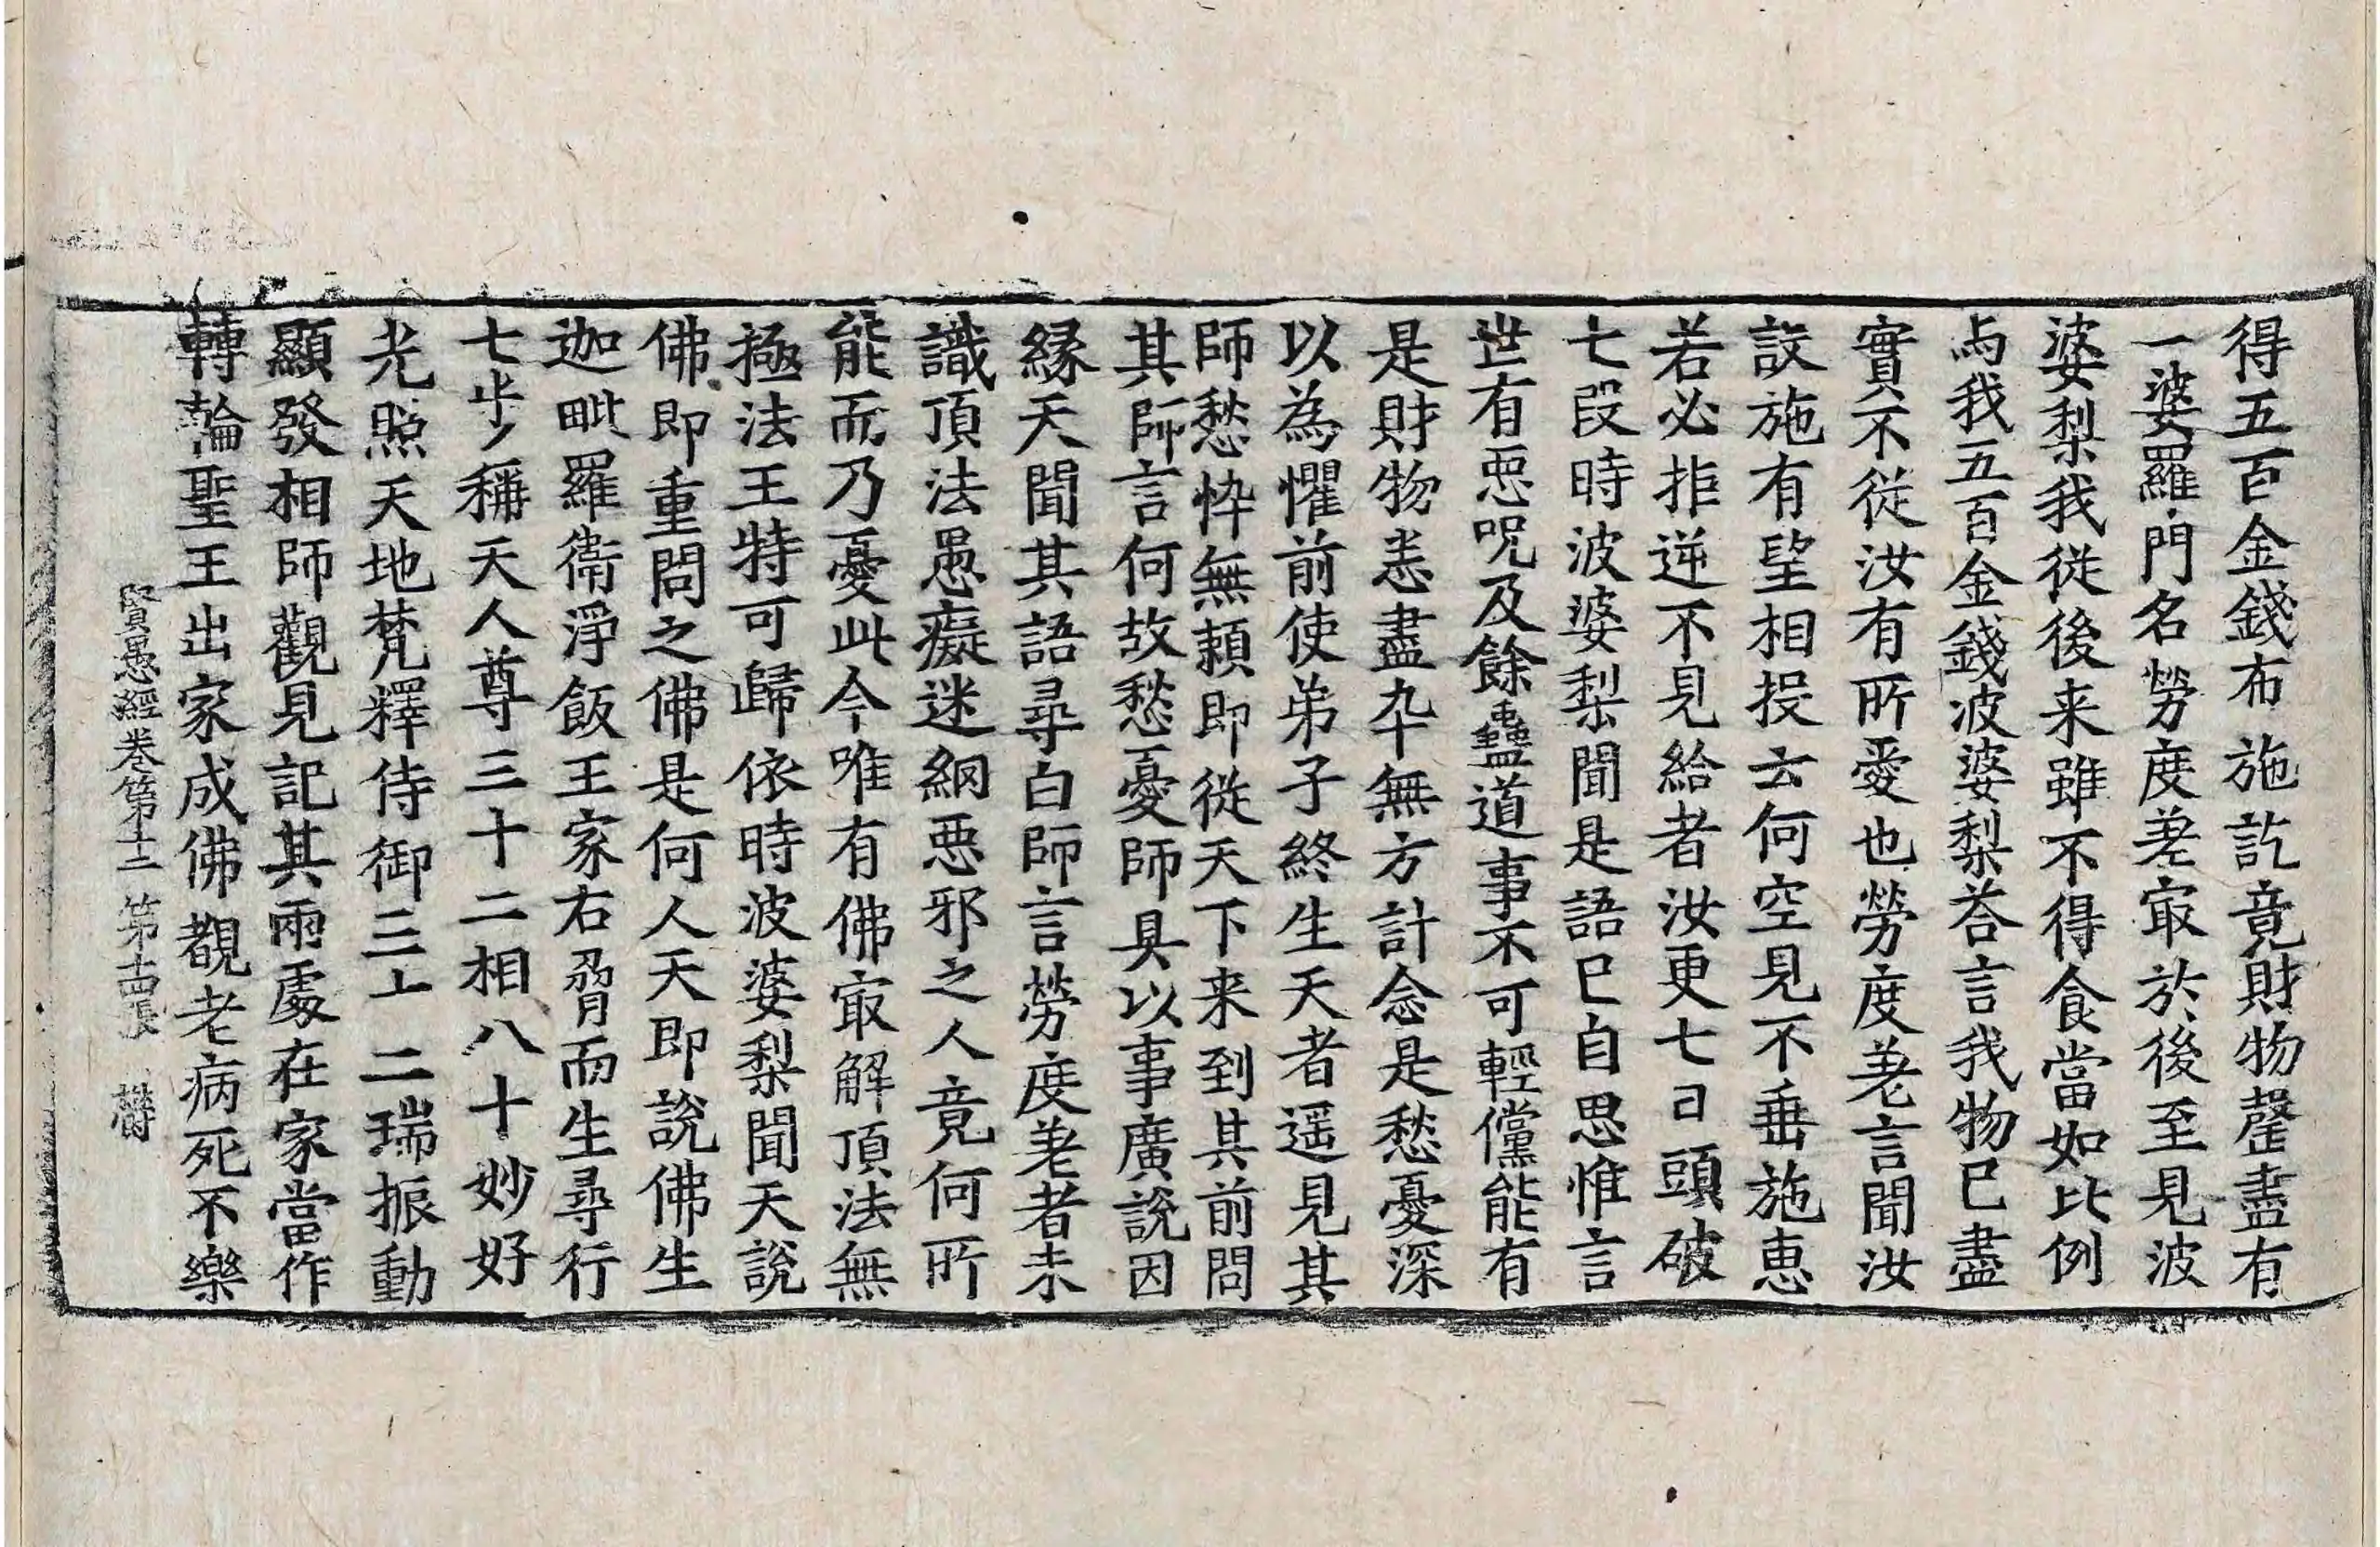 得五百金錢布施訖竟財物罄盡有
一婆羅門名勞度差㝡於後至見波
婆梨我從後来雖不得食當如比例
与我五百金錢波婆梨荅言我物已盡
實不從汝有所愛也勞度差言聞汝
設施有望相投云何空見不垂施恵
若必拒逆不見給者汝更七日頭破
七段時波婆梨聞是語已自思惟言
世有惡呪及餘蠱道事不可輕儻能有
是財物悉盡卒無方計念是愁憂深
以為懼前使弟子終生天者遥見其
師愁悴無頼即從天下来到其前問
其師言何故愁憂師具以事廣說因
縁天聞其語尋白師言勞度差者未
識頂法愚癡迷網惡邪之人竟何所
能而乃憂此今唯有佛㝡解頂法無
極法王特可歸依時波婆梨聞天說
佛即重問之佛是何人天即說佛生
迦毗羅衛淨飯王家右脅而生尋行
七步稱天人尊三十二相八十妙好
光照天地梵釋侍御三十二瑞振動
顯發相師觀見記其兩處在家當作
轉輪聖王出家成佛覩老病死不樂
賢愚經卷第十二 第十四張